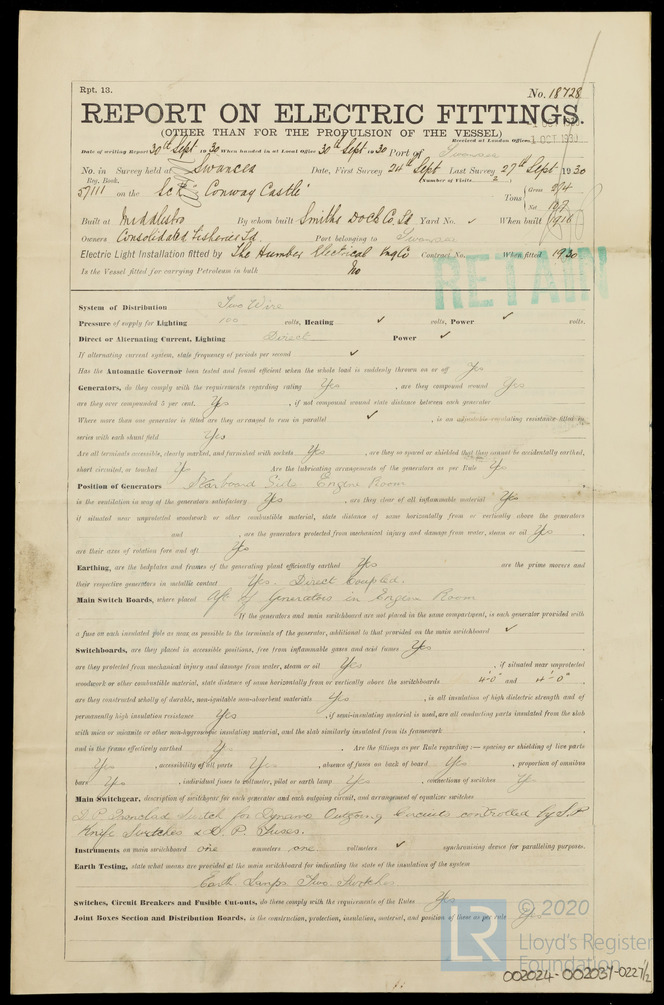 Rpt. 13.
No. 18728
REPORT ON ELECTRIC FITTINGS.
(OTHER THAN FOR THE PROPULSION OF THE VESSEL)
Received at London Office 1 OCT 1930
Date of writing Report 30th Sept 1930 When handed in at Local Office 30th Sept 1930 Port of Swansea
No. in Survey held at Swansea Date, First Survey 24th Sept Last Survey 27th Sept 1930
Reg. Book. (Number of Visits 2)
57111 on the "Conway Castle" Tons Gross 274
Net 107
Built at Middlesbro By whom built Smiths Dock Co. Ld Yard No. ✓ When built 1916
Owners Consolidated Fisheries Ld. Port belonging to Swansea
Electric Light Installation fitted by The Humber Electrical Engs Co Contract No. When fitted 1930
Is the Vessel fitted for carrying Petroleum in bulk No
RETAIN
System of Distribution Two Wire
Pressure of supply for Lighting 100 volts, Heating ✓ volts, Power ✓ volts,
Direct or Alternating Current, Lighting Direct Power ✓
If alternating current system, state frequency of periods per second ✓
Has the Automatic Governor been tested and found efficient when the whole load is suddenly thrown on or off Yes
Generators, do they comply with the requirements regarding rating Yes , are they compound wound Yes
are they over compounded 5 per cent. Yes , if not compound wound state distance between each generator
Where more than one generator is fitted are they arranged to run in parallel ✓ , is an adjustable regulating resistance fitted in
series with each shunt field Yes
Are all terminals accessible, clearly marked, and furnished with sockets Yes , are they so spaced or shielded that they cannot be accidentally earthed,
short circuited, or touched Yes Are the lubricating arrangements of the generators as per Rule Yes
Position of Generators Starboard Side Engine Room
is the ventilation in way of the generators satisfactory Yes , are they clear of all inflammable material Yes
if situated near unprotected woodwork or other combustible material, state distance of same horizontally from or vertically above the generators
and , are the generators protected from mechanical injury and damage from water, steam or oil Yes
are their axes of rotation fore and aft Yes
Earthing, are the bedplates and frames of the generating plant efficiently earthed Yes are the prime movers and
their respective generators in metallic contact Yes. Direct Coupled.
Main Switch Boards, where placed Aft of Generators in Engine Room
If the generators and main switchboard are not placed in the same compartment, is each generator provided with
a fuse on each insulated pole as near as possible to the terminals of the generator, additional to that provided on the main switchboard ✓
Switchboards, are they placed in accessible positions, free from inflammable gases and acid fumes Yes
are they protected from mechanical injury and damage from water, steam or oil Yes , if situated near unprotected
woodwork or other combustible material, state distance of same horizontally from or vertically above the switchboards 4'-0" and 4'-0"
are they constructed wholly of durable, non-ignitable non-absorbent materials Yes , is all insulation of high dielectric strength and of
permanently high insulation resistance Yes , if semi-insulating material is used, are all conducting parts insulated from the slab
with mica or micanite or other non-hygroscopic insulating material, and the slab similarly insulated from its framework
and is the frame effectively earthed Yes . Are the fittings as per Rule regarding:— spacing or shielding of live parts
Yes , accessibility of all parts Yes , absence of fuses on back of board Yes , proportion of omnibus
bars Yes , individual fuses to voltmeter, pilot or earth lamp Yes , connections of switches Yes
Main Switchgear, description of switchgear for each generator and each outgoing circuit, and arrangement of equalizer switches
D.P. Ironclad Switch for Dynamo Outgoing Circuits controlled by S.P
Knife Switches & D.P. Fuses.
Instruments on main switchboard one ammeters one voltmeters ✓ synchronising device for paralleling purposes.
Earth Testing, state what means are provided at the main switchboard for indicating the state of the insulation of the system
Earth Lamps Two Switches
Switches, Circuit Breakers and Fusible Cut-outs, do these comply with the requirements of the Rules Yes
Joint Boxes Section and Distribution Boards, is the construction, protection, insulation, material, and position of these as per rule Yes
© 2020
LR
Lloyd's Register
Foundation
002024-002037-0227 1/2